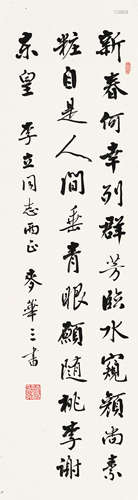 新春何幸列群芳临水窥颜尚素
粧自是人間垂青眼願随桃李谢
东皇 李立同志两正 麥華三書